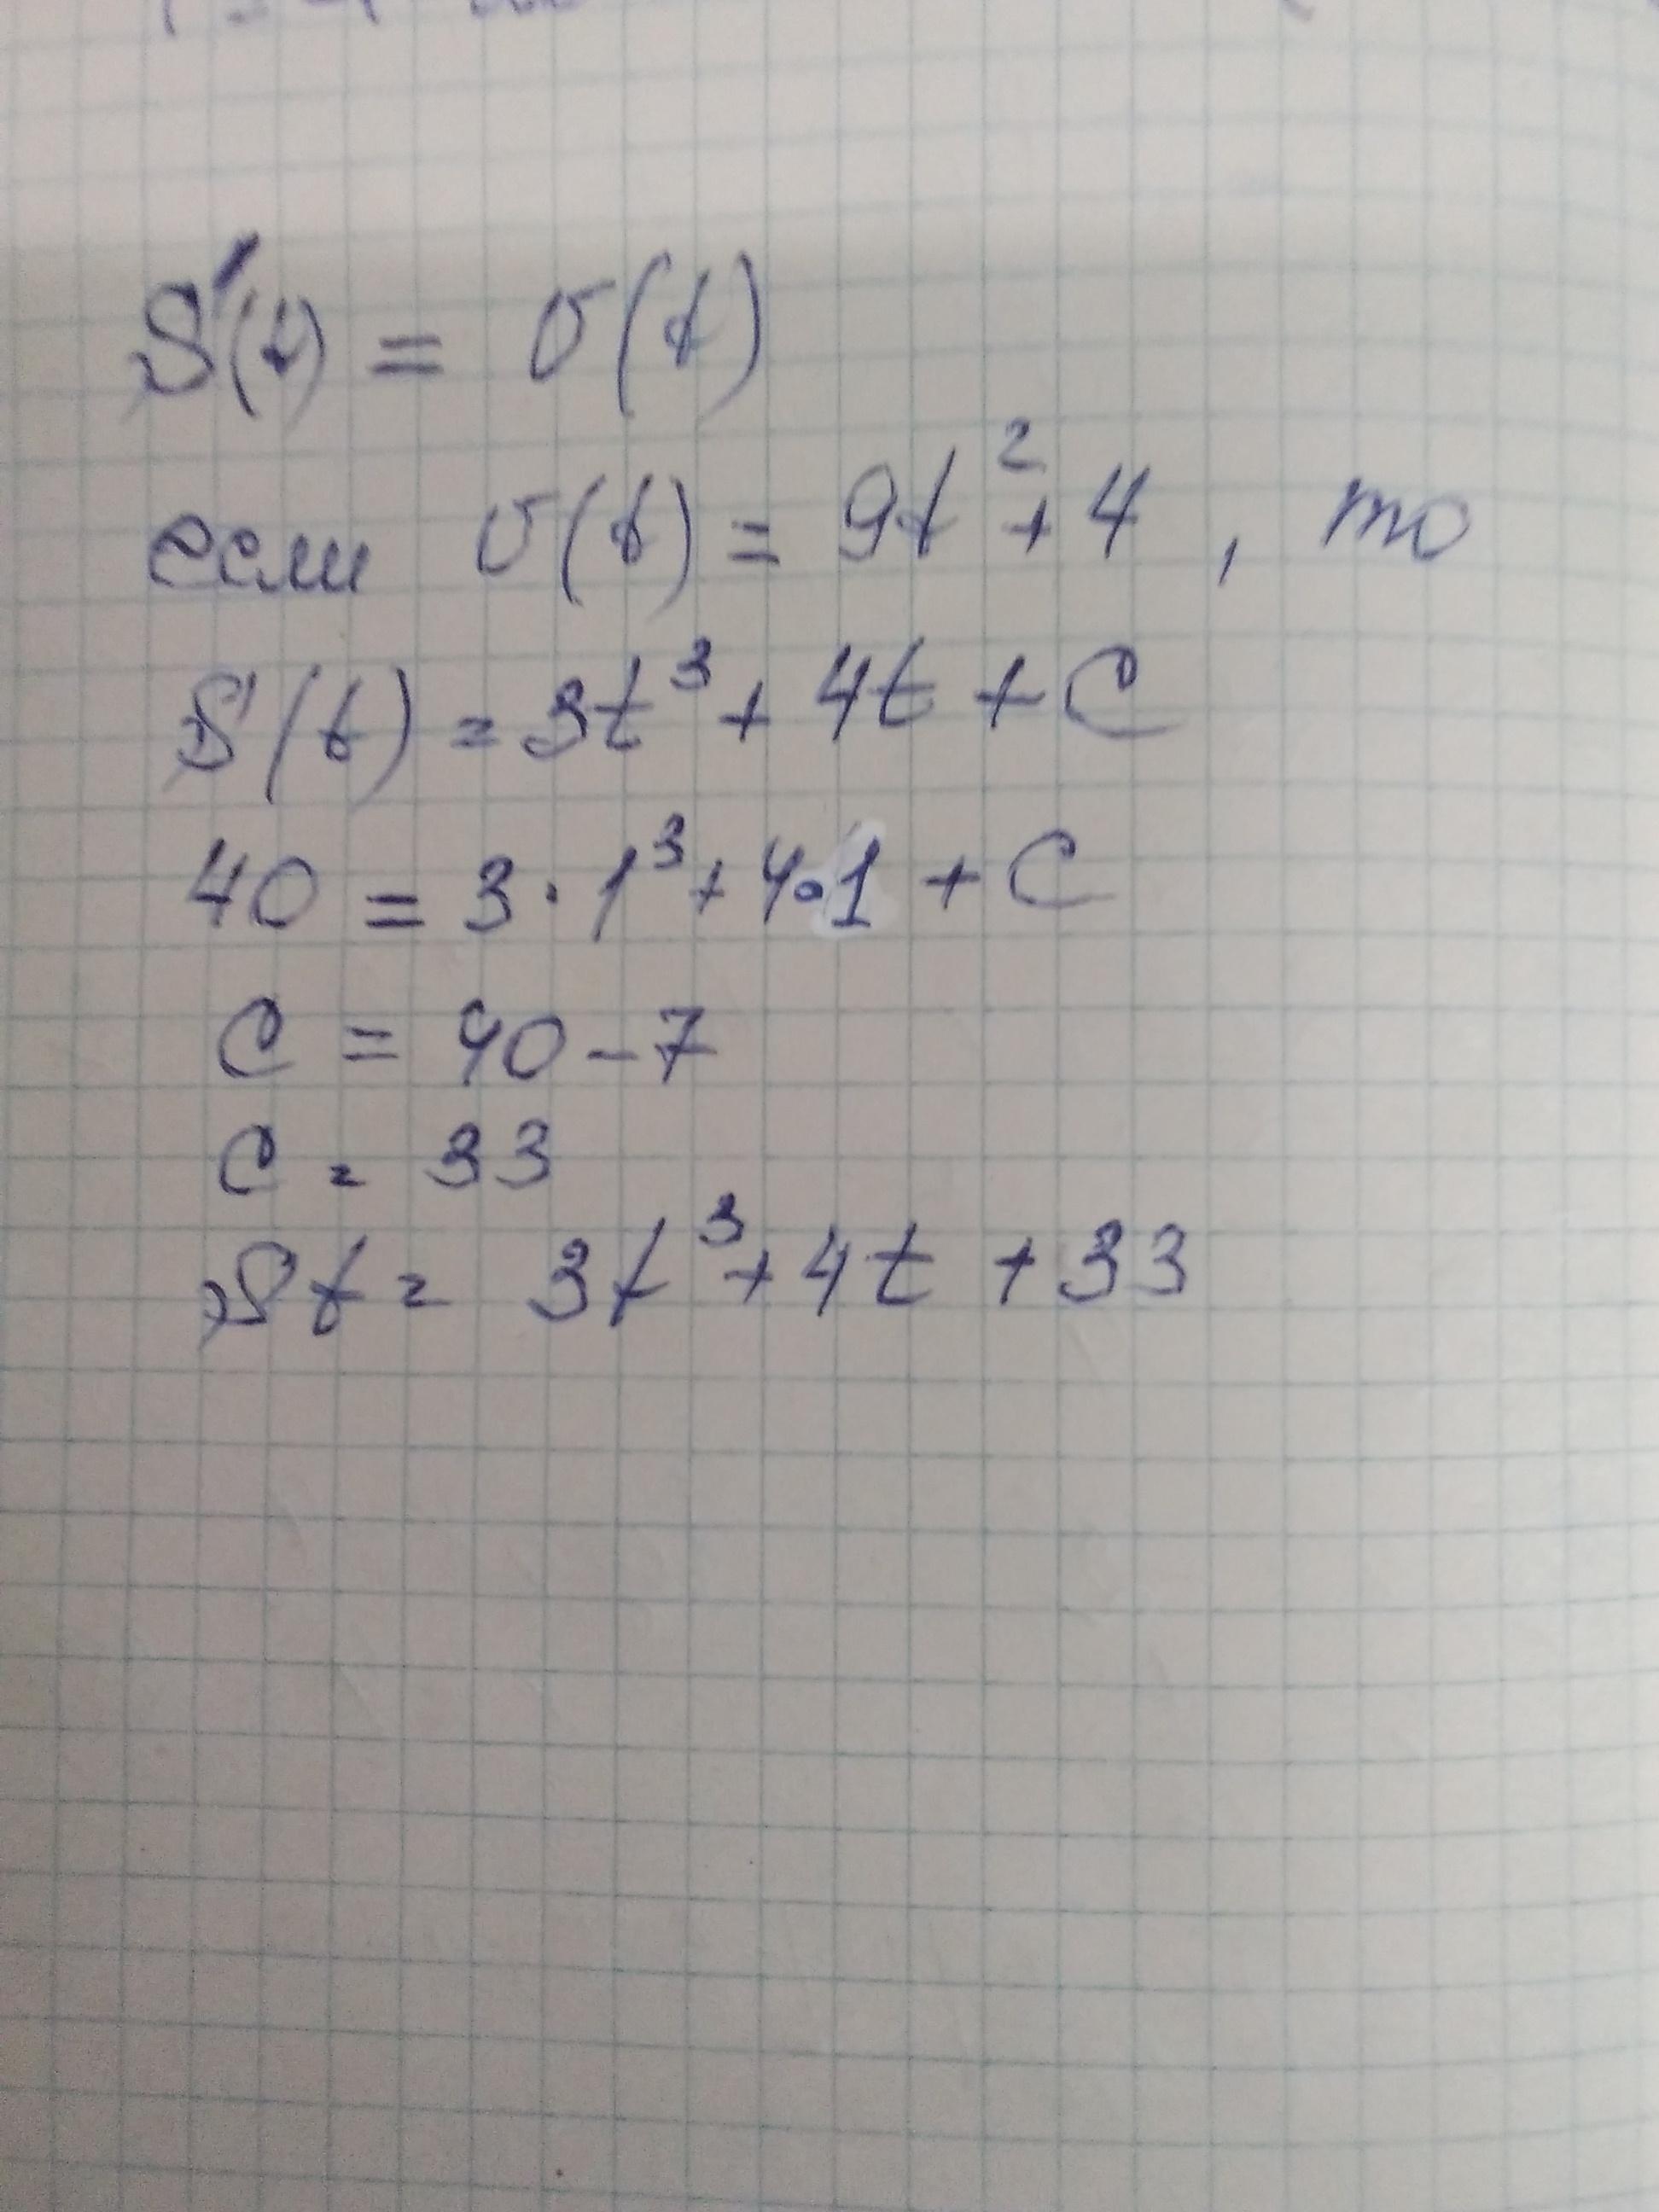 S'(t) = υ(t)
если υ(t) = 9t² + 4 , то
S(t) = 3t³ + 4t + C
40 = 3 · 1³ + 4·1 + C
C = 40 - 7
C = 33
St = 3t³ + 4t + 33